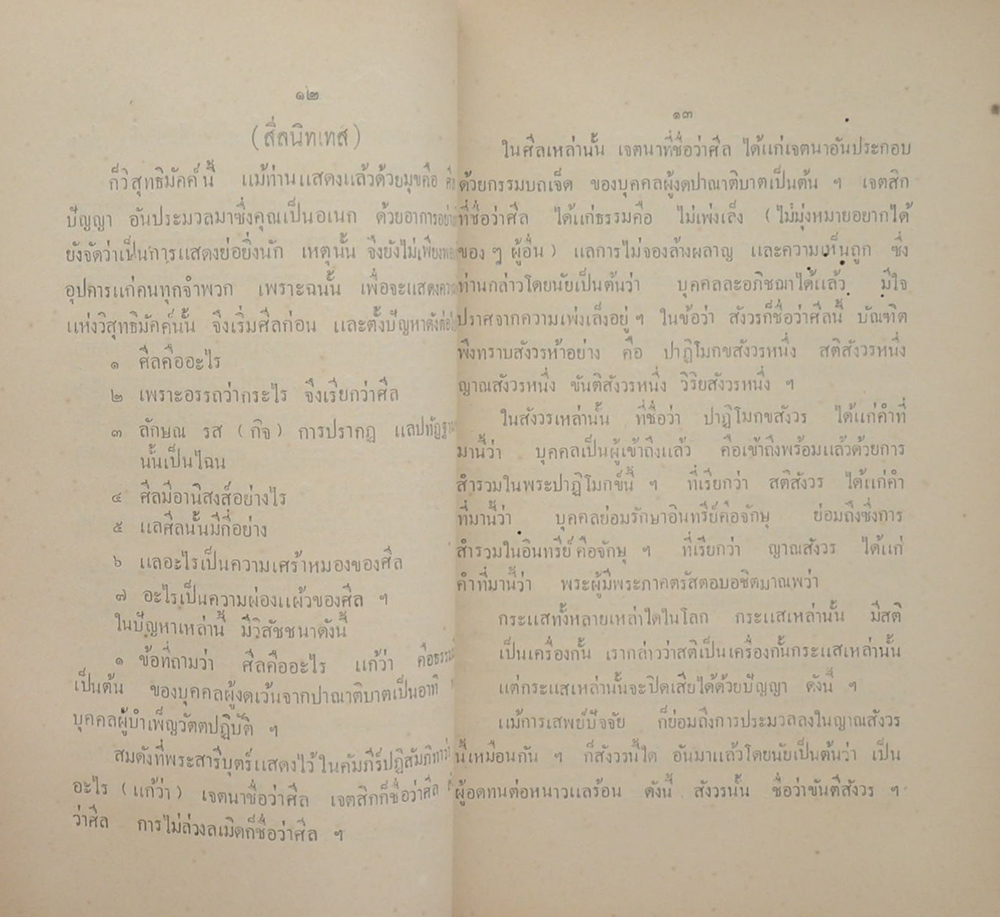 ๑๒
(สีลนิทเทส)
ก็วิสุทธิมัคค์นี้ แม้ท่านแสดงแล้วด้วยมุขคือ
ปัญญา อันประมวลมาซึ่งคุณเป็นอเนก ด้วยอาการอย่าง
ยังจัดว่าเป็นการแสดงย่อยิ่งนัก เหตุนั้น จึงยังไม่เพียงพอ
อุปการแก่คนทุกจำพวก เพราะฉนั้น เพื่อจะแสดงความ
แห่งวิสุทธิมัคค์นั้น จึงเริ่มศีลก่อน และตั้งปัญหาดังต่อไป
๑ ศีลคืออะไร
๒ เพราะอรรถว่ากระไร จึงเรียกว่าศีล
๓ ลักษณ รส (กิจ) การปรากฏ แลปทัฏฐาน
นั้นเป็นไฉน
๔ ศีลมีอานิสงส์อย่างไร
๕ แลศีลนั้นมีกี่อย่าง
๖ แลอะไรเป็นความเศร้าหมองของศีล
๗ อะไรเป็นความผ่องแผ้วของศีล ฯ
ในปัญหาเหล่านี้ มีวิสัชชนาดังนี้
๑ ข้อที่ถามว่า ศีลคืออะไร แก้ว่า คือธรรม
เป็นต้น ของบุคคลผู้งดเว้นจากปาณาติบาตเป็นอาทิ
บุคคลผู้บำเพ็ญวัตตปฏิบัติ ฯ
สมดังที่พระสารีบุตร์แสดงไว้ในคัมภีร์ปฏิสัมภิทาว่า
อะไร (แก้ว่า) เจตนาชื่อว่าศีล เจตสิกก็ชื่อว่าศีล
ว่าศีล การไม่ล่วงลเมิดก็ชื่อว่าศีล ฯ
๑๓
ในศีลเหล่านั้น เจตนาที่ชื่อว่าศีล ได้แก่เจตนาอันประกอบ
ด้วยกรรมบถเจ็ด ของบุคคลผู้งดปาณาติบาตเป็นต้น ฯ เจตสิก
ที่ชื่อว่าศีล ได้แก่ธรรมคือ ไม่เพ่งเล็ง (ไม่มุ่งหมายอยากได้
ของ ๆ ผู้อื่น) แลการไม่จองล้างผลาญ และความเห็นถูก ซึ่ง
ท่านกล่าวโดยนัยเป็นต้นว่า บุคคลละอภิชฌาได้แล้ว มีใจ
ปราศจากความเพ่งเล็งอยู่ ฯ ในข้อว่า สังวรก็ชื่อว่าศีลนี้ บัณฑิต
พึงทราบสังวรห้าอย่าง คือ ปาฏิโมกขสังวรหนึ่ง สติสังวรหนึ่ง
ญาณสังวรหนึ่ง ขันติสังวรหนึ่ง วิริยสังวรหนึ่ง ฯ
ในสังวรเหล่านั้น ที่ชื่อว่า ปาฏิโมกขสังวร ได้แก่คำที่
มานี้ว่า บุคคลเป็นผู้เข้าถึงแล้ว คือเข้าถึงพร้อมแล้วด้วยการ
สำรวมในพระปาฏิโมกข์นี้ ฯ ที่เรียกว่า สติสังวร ได้แก่คำ
ที่มานี้ว่า บุคคลย่อมรักษาอินทรีย์คือจักษุ ย่อมถึงซึ่งการ
สำรวมในอินทรีย์ คือจักษุ ฯ ที่เรียกว่า ญาณสังวร ได้แก่
คำที่มานี้ว่า พระผู้มีพระภาคตรัสตอบอชิตมาณพว่า
กระแสทั้งหลายเหล่าใดในโลก กระแสเหล่านั้น มีสติ
เป็นเครื่องกั้น เรากล่าวว่าสติเป็นเครื่องกั้นกระแสเหล่านั้น
แต่กระแสเหล่านั้นจะปิดเสียได้ด้วยปัญญา ดังนี้ ฯ
แม้การเสพย์ปัจจัย ก็ย่อมถึงการประมวลลงในญาณสังวร
นี้เหมือนกัน ฯ ก็สังวรนี้ใด อันมาแล้วโดยนัยเป็นต้นว่า เป็น
ผู้อดทนต่อหนาวแลร้อน ดังนี้ สังวรนั้น ชื่อว่าขันติสังวร ฯ